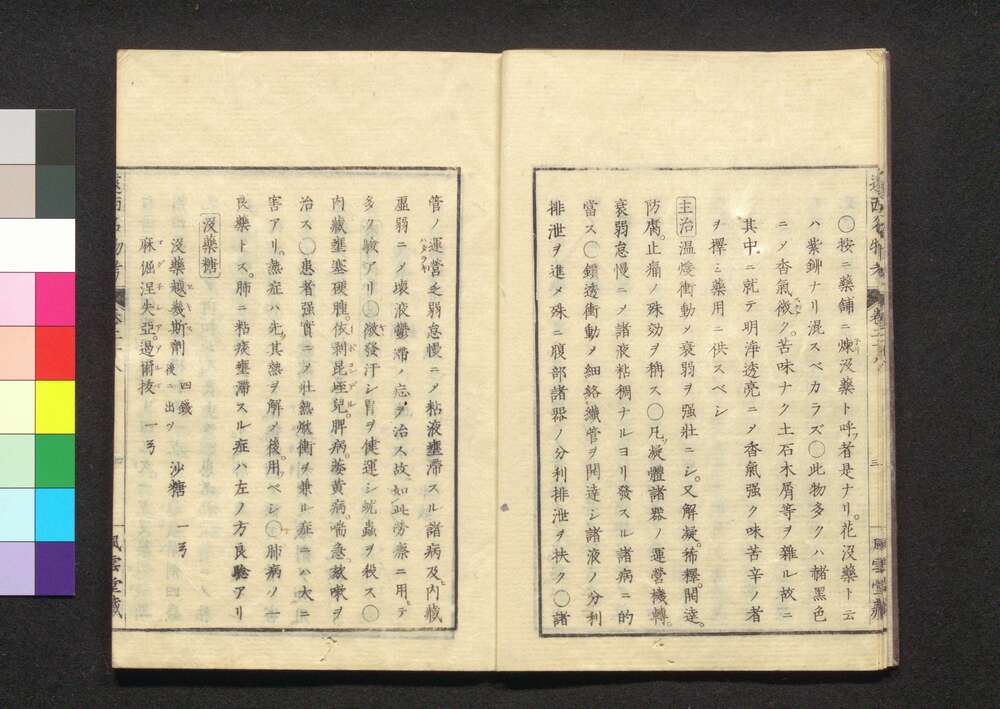 ○按ニ藥舖ニ煉没藥ト呼フ者是ナリ。花没藥ト云
ハ紫鉚ナリ混スベカラズ○此物多クハ赭黑色
ニ〆香氣微ク。苦味ナク土石木屑等ヲ雜ル故ニ
其中ニ就テ明淨透亮ニ〆香氣强ク味苦辛ノ者
ヲ擇ミ藥用ニ供スベシ
主治 温煖衝動〆衰弱ヲ强壯ニシ。又解凝。稀釋。開達。
防腐。止痛ノ殊効ヲ稱ス○凡ソ凝體諸器ノ運營機轉。
衰弱怠慢ニ〆諸液粘稠ナルヨリ發スル諸病ニ的
當ス○鑽透衝動〆細絡纎管ヲ開達シ諸液ノ分利
排泄ヲ進メ殊ニ腹部諸器ノ分利排泄ヲ扶ク○諸
三
風雲堂藏
管ノ運營乏弱怠慢ニ〆粘液壅滯スル諸病及ヒ内藏
虛弱ニ〆壊液鬱滯ノ症ヲ治ス故ニ如此勞瘵ニ用ヒテ
多ク驗アリ○微發汗シ胃ヲ健運シ蚘蟲ヲ殺ス○
内藏壅塞硬腫。依剝昆垤兒。脾病。萎黄病喘急。欬嗽ヲ
治ス○患者强實ニ〆壯熱焮衝ヲ兼ル症ニハ大ニ
害アリ。熱症ハ先ツ其熱ヲ解〆後。用フベシ○肺病ノ一
良藥トス。肺ニ粘痰壅滯スル症ハ左ノ方良驗アリ
没藥糖
没藥越幾斯劑 後ニ出ツ 四錢 沙糖 一弓
麻倔涅失亞。亞爾抜 一弓
四
風雲堂藏